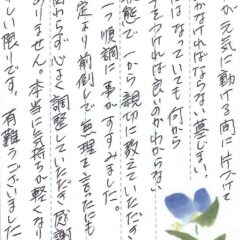 が元気に動ける間に片づけて
かなければならない暮しまい。
はなっていても何から
をつければ良いかわからない
状態で一から親切に教えていただき
一つ順調に事がすすみました。
定より前倒しで無理を言ったにも
関わらず心よく調整していただき感謝
ありません。本当に気持が軽くなり
い限りです。有難うございました